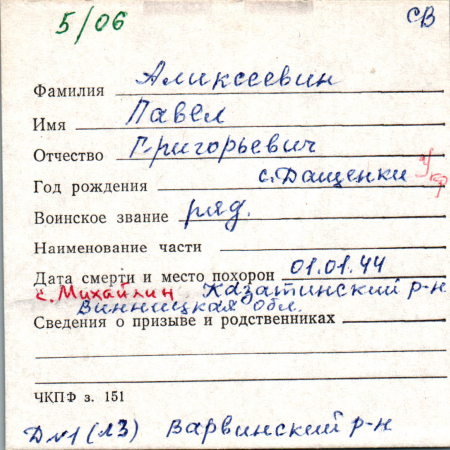 5/06 СВ
Фамилия Аликсеевин
Имя Павел
Отчество Григорьевич
Год рождения с. Дащенки
Воинское звание ряд.
Наименование части
Дата смерти и место похорон 01.01.44
с. Михайлин Казатинский р-н
Винницкая обл.
Сведения о призыве и родственниках
ЧКПФ з. 151
Варвинский р-н